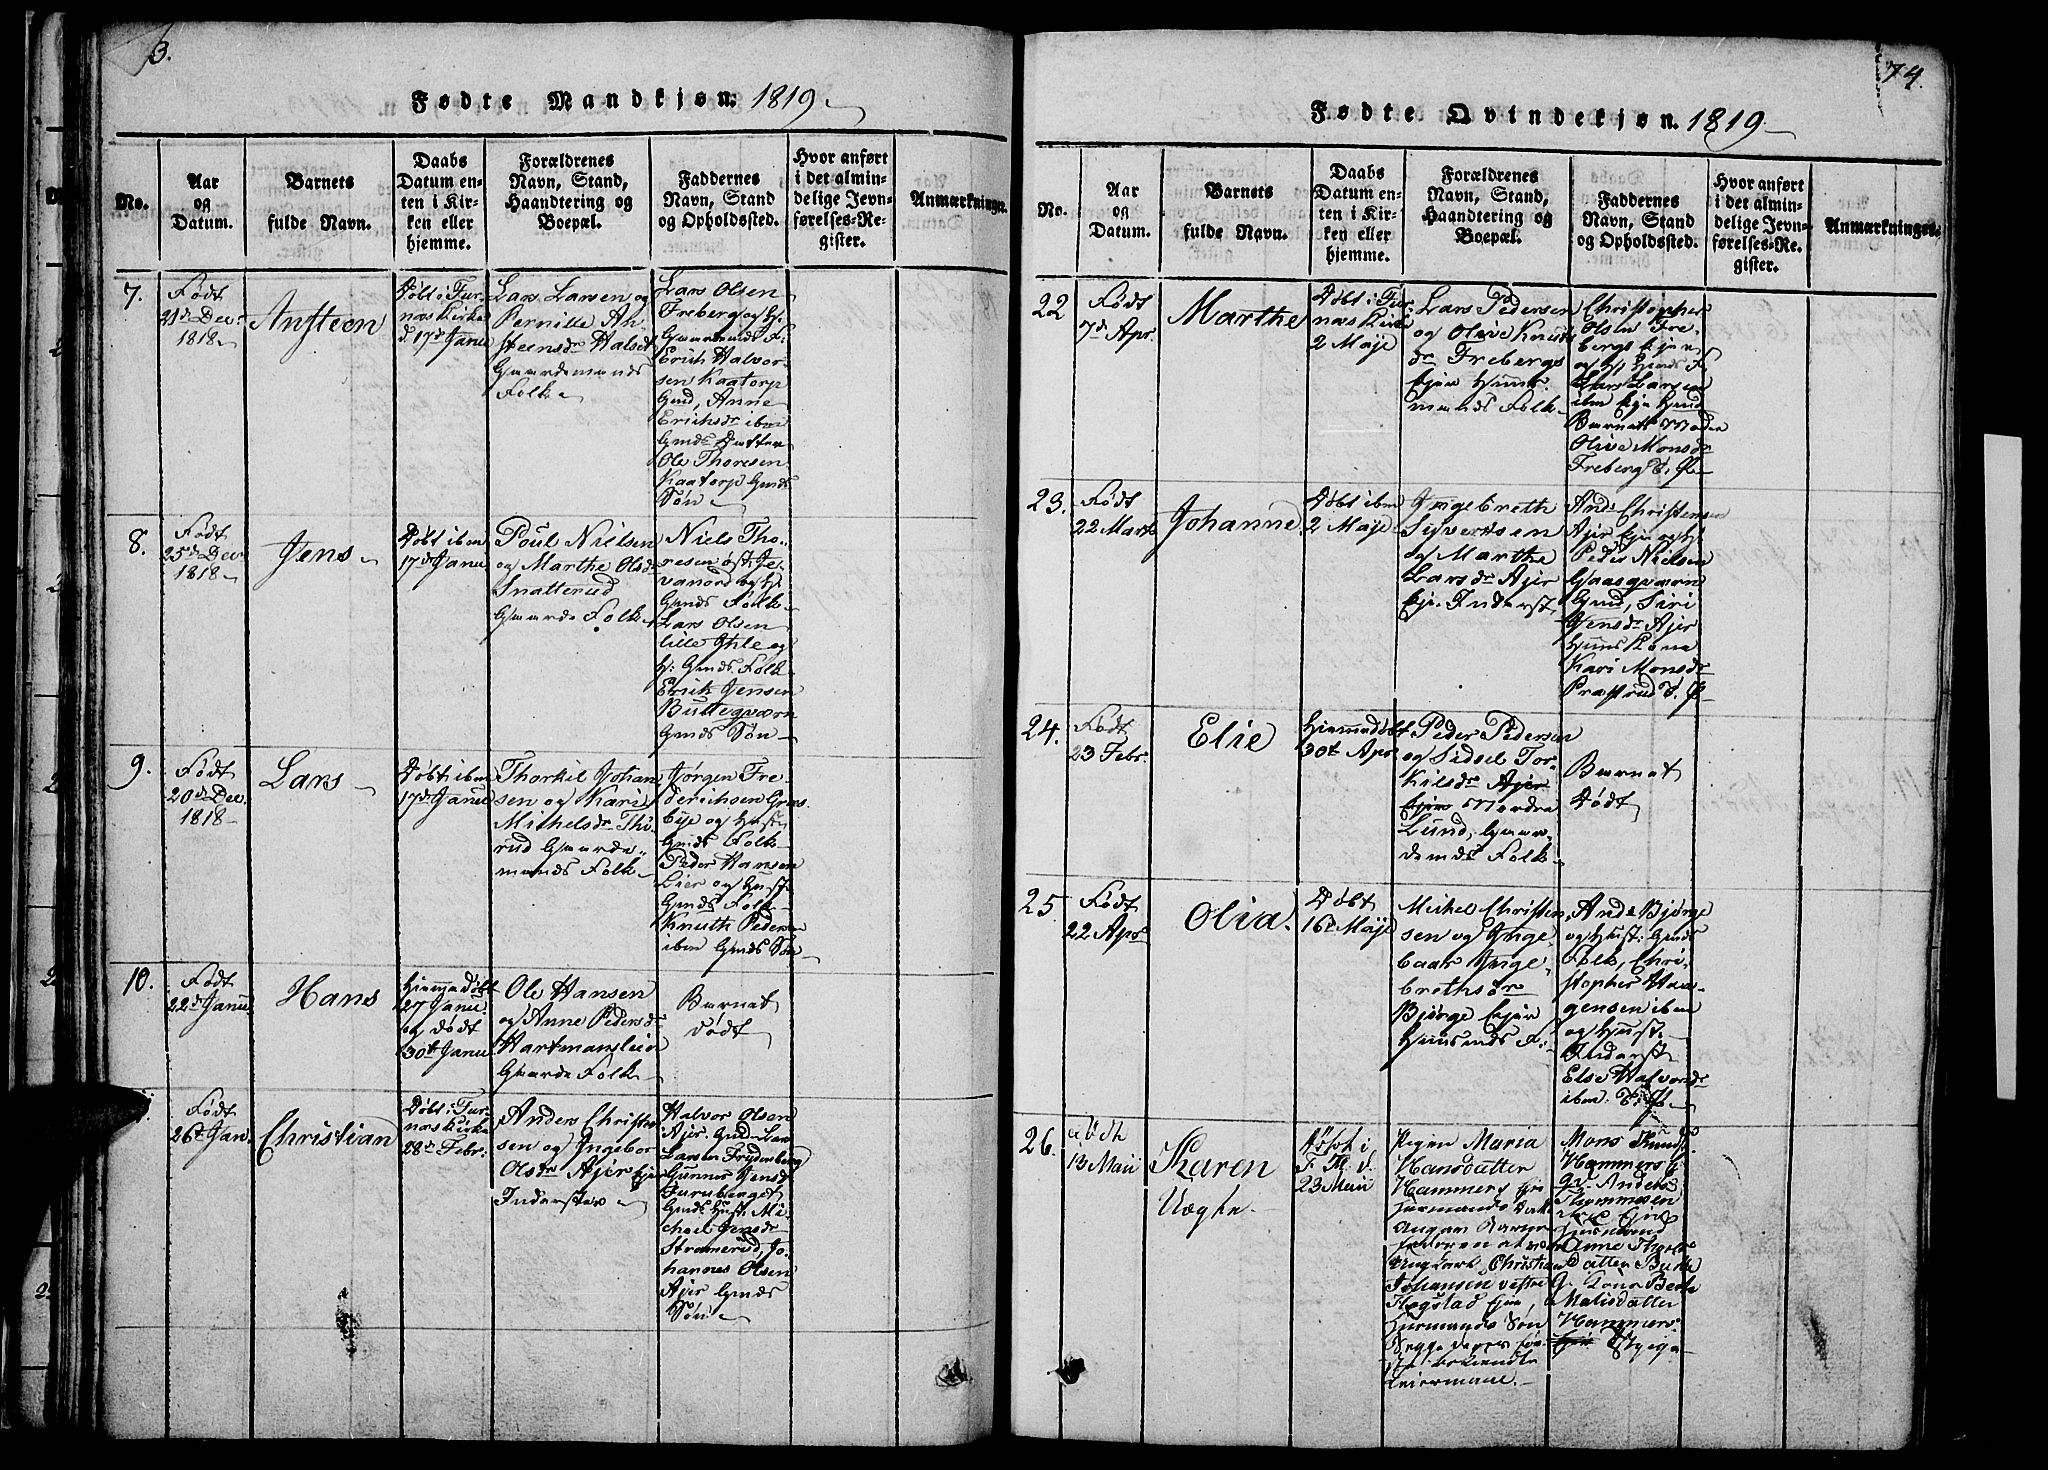 3.
Fødte Mandkjøn. 1819
No.
Aar
og
Datum.
Barnets
fulde Navn.
Daabs
Datum en-
ten i Kir-
ken eller
hjemme.
Forældrenes
Navn, Stand,
Haandtering og
Boepæl.
Faddernes
Navn, Stand
og Opholdssted.
Hvor anført
i det almin-
delige Jevn-
førelses-Re-
gister.
Anmærkninger.
7.
Født
21de Dec:
1818
Ansteen
Døbt i Fur-
næs Kirke
d. 17de Janu
Lars Larsen og
Pernille An-
steensdr Halset
Gaardemands
Folk
Lars Olsen
Freberg og H:
Gaardmds F.
Erich Halvor-
sen Kaatorp
Gmd, Anne
Erichsdr ibm
Gmds Datter
Ole Thoresen
Kaatorp Gmds
Søn
8.
Født
25de Dec
1818
Jens
Døbt ibm
17de Janu
Poul Nielsen
og Marthe Olsdr
Snatterud
Gaarde Folk
Niels Tho-
resen øst Je-
vanord og H:
Gmds Folk
Lars Olsen
lille Ihle og
H: Gmds Folk
Erik Jensen
Butteqværn
Gmds Søn
9.
Født
20de Dec.
1818
Lars
Døbt ibm
17de Janu
Thorkil Johan
sen og Kari
Mikkelsdr Thi-
rud Gaarde-
mands Folk
Jørgen Fre-
derichsen
Eije og Hust
Gmds Folk
Peder Hansen
Lier og Hust
Gmds Folk
Knuth Pedersen
ibm Gmds Søn
10.
Født
22de Janu
Hans
Hiemmedøbt
27 Janu.
og Født
30te Janu
Ole Hansen
og Anne Pedersdr
Hartmanslien
Gaarde Folk
Barnet
dødt
Født
26te Jan.
Christian
Døbt i Fur-
næs Kirke
28de Febr:
Anders Christen
sen og Ingebor
Olsdr Ajer Ejer
Inderster
Halvor Olsen
Ajer Gmd Lars
Larsen Frydenberg
Gunner Jensd
Furuberget
Gmds Hust. Mi-
chel Jensdr
Stramerud, Jo-
hannes Olsen
Ajer Gmds
Søn
74.
Fødte Qvindekjøn. 1819
No.
Aar
og
Datum.
Barnets
fulde Navn.
Daabs
Datum en-
ten i Kir-
ken eller
hjemme.
Forældrenes
Navn, Stand,
Haandtering og
Boepæl.
Faddernes
Navn, Stand
og Opholdssted.
Hvor anført
i det almin-
delige Jevn-
førelses-Re-
gister.
Anmærkninger.
22
Født
7de Apr.
Marthe
Døbt i Fur-
næs Kirke
2 Maje
Lars Pedersen
og Olive Knuds
dr Frebergs
Ejer Huus-
mands Folk
Christopher
Olsen Fre-
bergs Ejer
og H: Hmds F.
Lars Larsen
ibm Eje Gmd
Barnets Moder
Olive Monsdr
Freberg
23.
Født
22 Marti
Johanne
Døbt ibm
2 Maje
Ingebreth
Syvertsen
og Marthe
Larsdr Ajer
Eje. Inderst.
Ands Christensen
Ajer Eje og H:
Peder Nielsen
Gaasqværn
Gmd, Siri
Jensdr Ajer
Huus Kone
Kari Monsdr
Præstrud
24.
Født
23 Febr.
Elie
Hiemmedøbt
30te Apr
Peder Pedersen
og Sidsel Tor-
kilsdr Ajer
Ejer Nordre
Lund, Gaar-
demds Folk
Barnet
Dødt
25
Født
22 Apr
Olia.
Døbt
16de Maje
Mikel Christen-
sen og Inge-
baar Inge-
brethsdr
Bjørge Ejer
Huusmds F.
Ands Bjørge
og Hust: Gmds
Folk, Chri-
stopher Haa-
gensen ibm
og Hust
Inderst
Else Halvorsdr
ibm
26.
Født
13 Maii
Karen
Uægte
Døbt i
F. K. d.
23 Maii
Pigen Maria
Hansdatter
Hammers Eje
Huusmands Datter
angav Barne-
faderen at være
Ungkarl Christian
Johansen vestre
Hogstad Ejer,
Huusmands Søn
Begge deres før-
ste bekiendte
Leiermaal.
Mons Knuds.
Hammers G.
Gr. Anders
Thommesen
Huusmand
Anne Thors
Datter Burke
G. Kone Berte
Matisdatter
Hammers
Ejer Pige